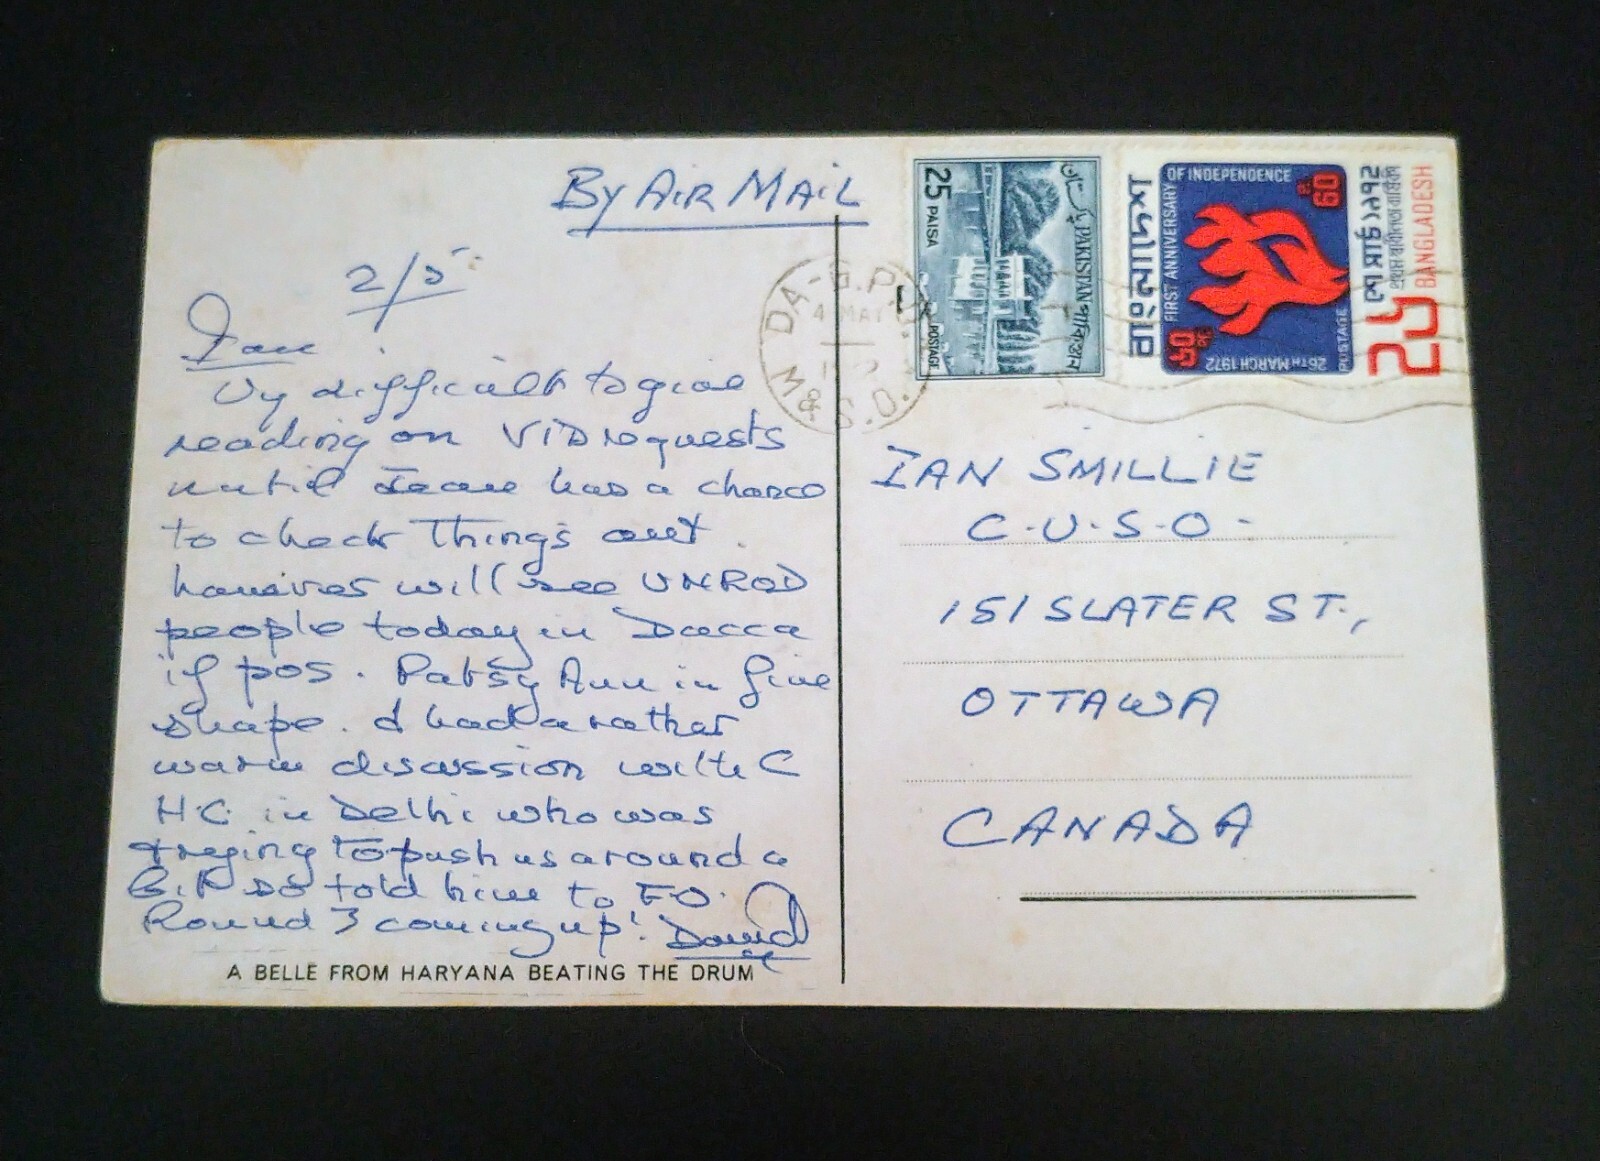 By Air Mail
2/5
Ian
Vy difficult to give
reading on VID requests
until Jean has a chance
to check things out.
however will see UNROD
people today in Dacca
if pos. Patsy Ann in fine
shape. I had a rather
warm discussion with C
H.C. in Delhi who was
trying to push us around a
bit so told him to F.O.
Round 3 coming up! David
A BELLE FROM HARYANA BEATING THE DRUM
25 PAISA
پاکستان PAKISTAN পাকিস্তান
POSTAGE
বাংলাদেশ
FIRST ANNIVERSARY OF INDEPENDENCE
26TH MARCH 1972
POSTAGE
60
২৬শে মার্চ ১৯৭২
প্রথম স্বাধীনতা বার্ষিকী
BANGLADESH
4 MAY
IAN SMILLIE
C.U.S.O.
151 SLATER ST.,
OTTAWA
CANADA